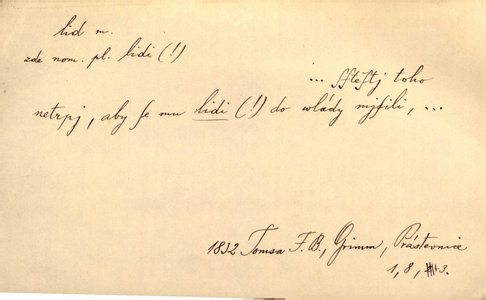 lid m.
zde nom. pl. lidi (!)
... sstěstj toho
netrpj, aby se mu lidi (!) do wlády mjsili, ...
1832 Tomsa F. B., Grimm, Prástevnice
1, 8, 3.